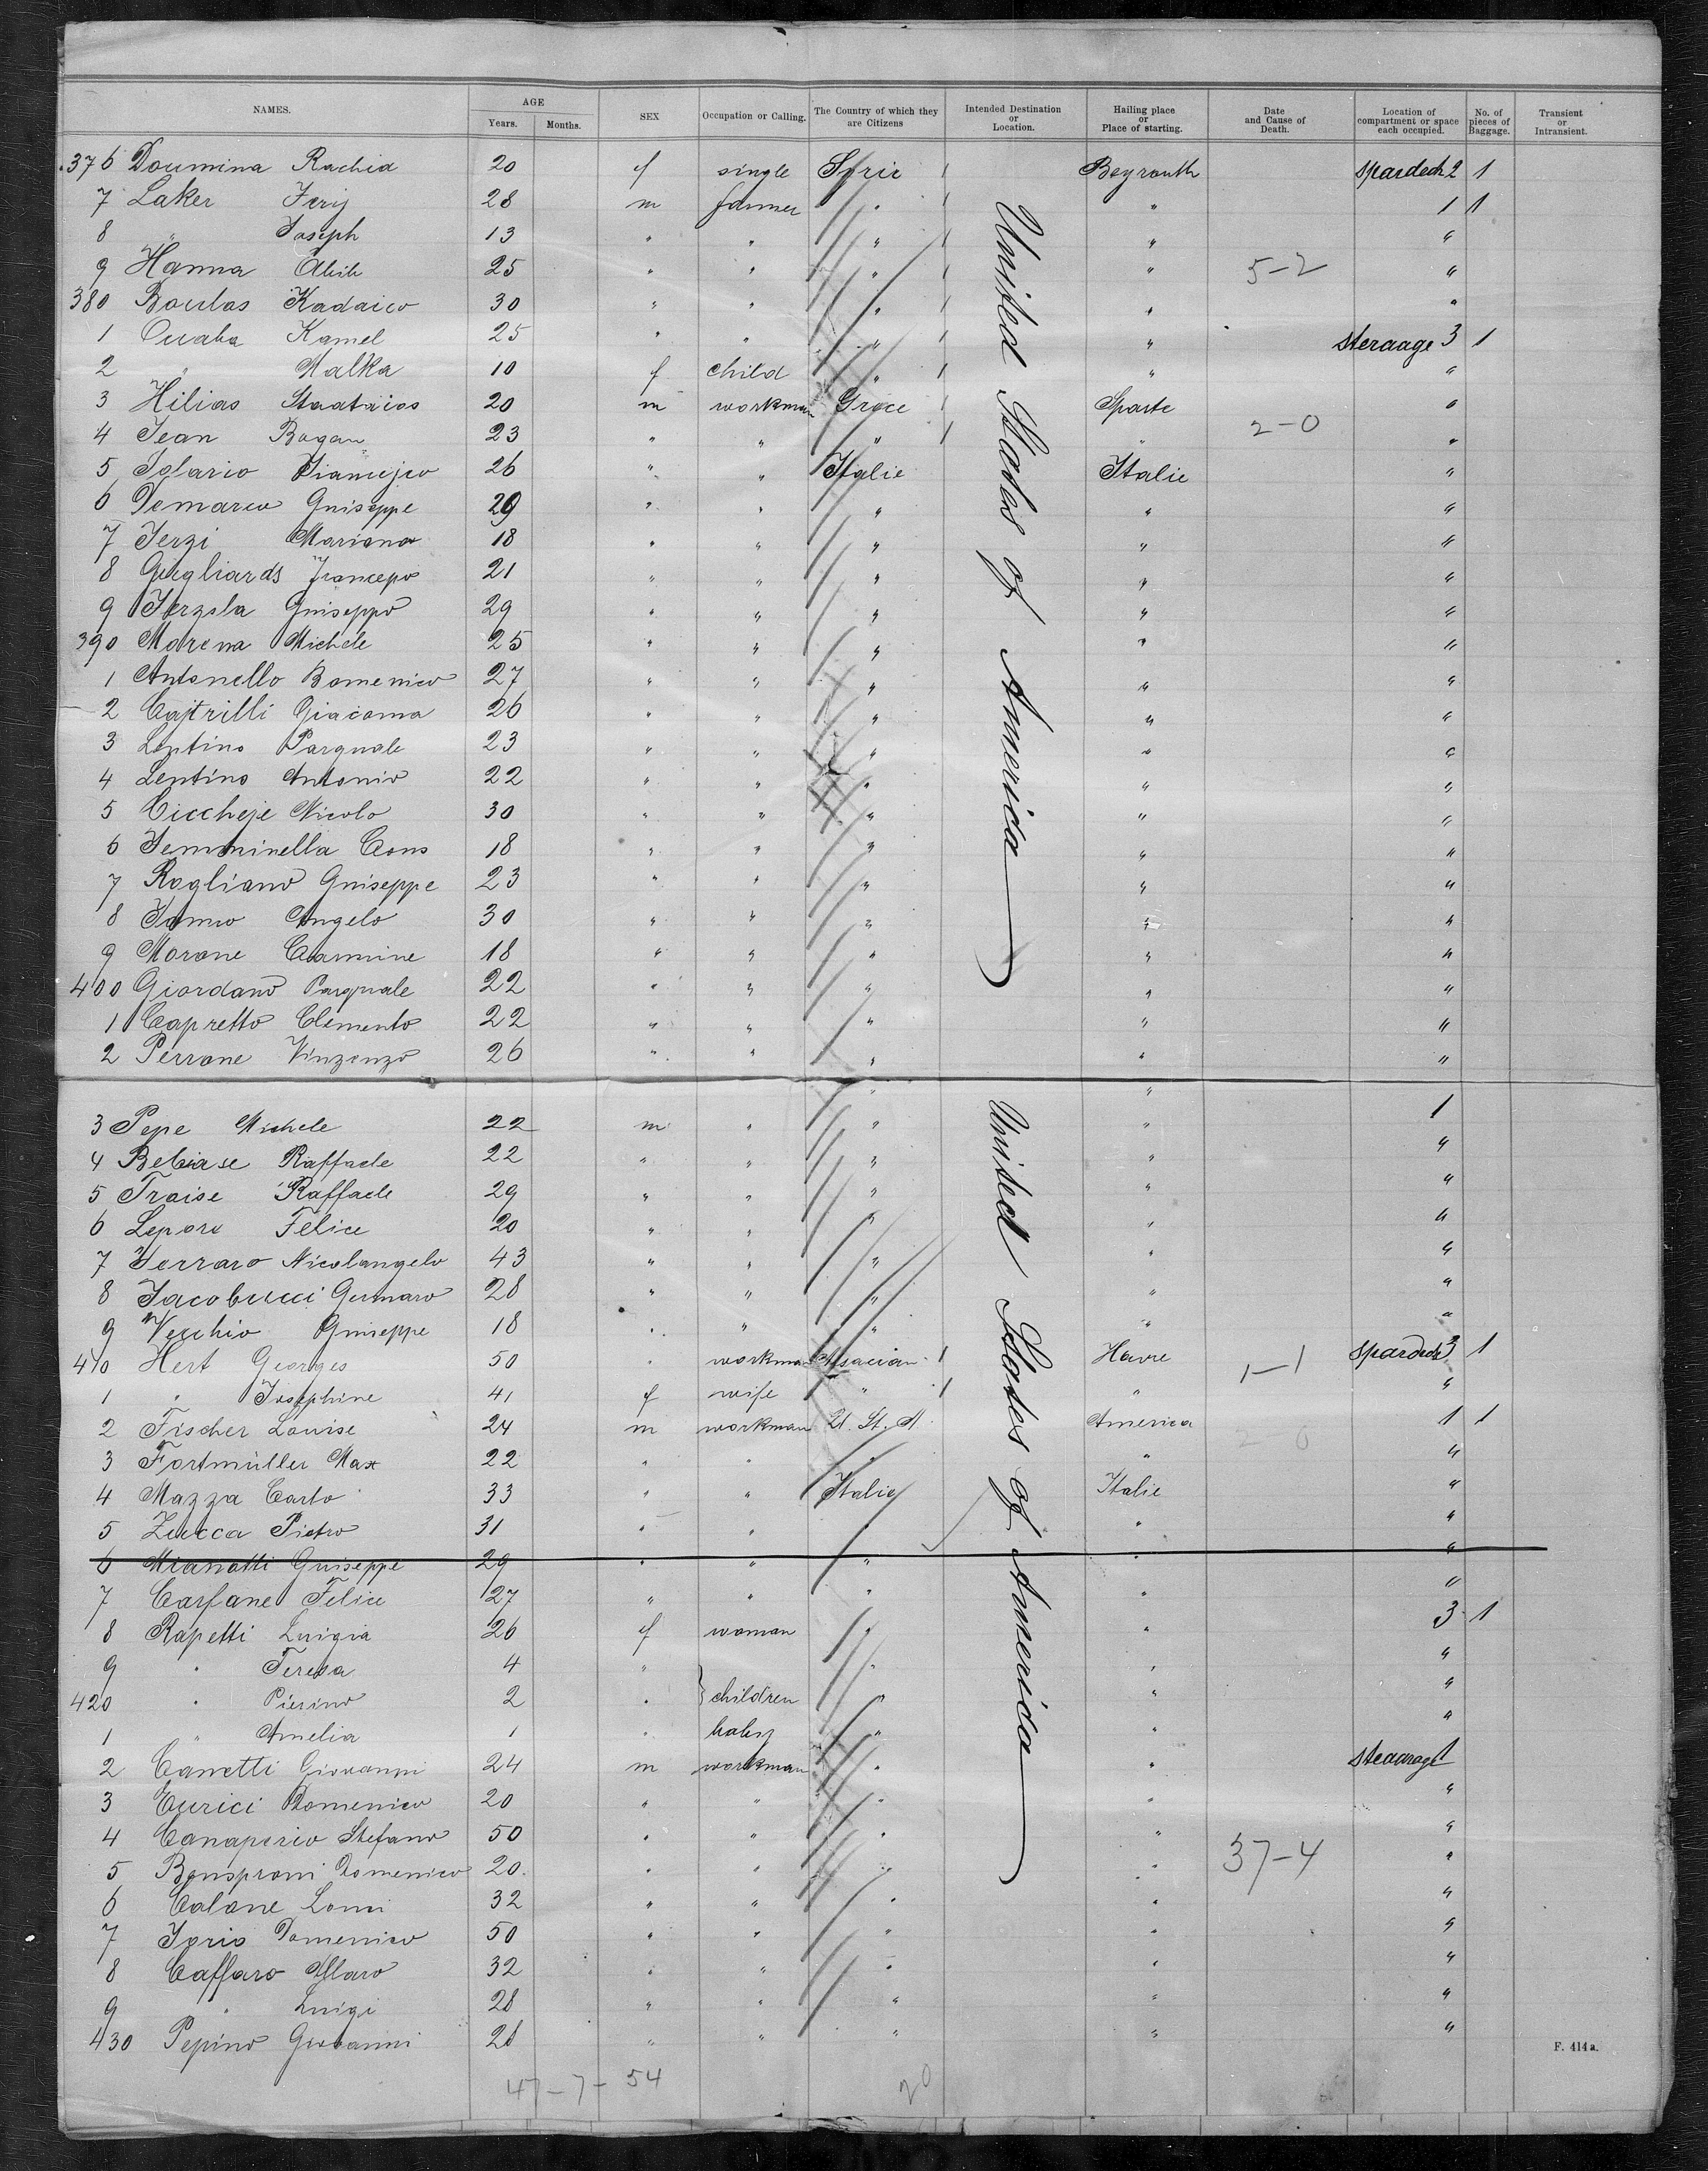 NAMES. AGE Years. Months. SEX Occupation or Calling. The Country of which they are Citizens Intended Destination or Location. Hailing place or Place of starting. Date and Cause of Death. Location of compartment or space each occupied. No. of pieces of Baggage. Transient or Intransient.
376 Doumina Rachid 20 f single Syrie 1 Beyrouth spardeck 2 1
7 Laker Ferij 28 m farmer " 1 " 1 1
8 " Joseph 13 " " " 1 " "
9 Hanna Abib 25 " " " 1 " 5-2 "
380 Boulos Kadaico 30 " " " 1 " "
1 Ouaba Kamel 25 " " " 1 " steraage 3 1
2 " Malka 10 f child " 1 " "
3 Hilias Staataios 20 m workman Grèce 1 Sparte "
4 Jean Bogan 23 " " " 1 " 2-0 "
5 Iglario 26 " " Italie Italie "
6 Demarco Guiseppe 29 " " " " "
7 Terzi Mariano 18 " " " " "
8 Gugliards Francepo 21 " " " " "
9 Ferzola Guiseppo 29 " " " " "
390 Morena Michele 25 " " " " "
1 Antonello Bomenico 27 " " " " "
2 Cajtrilli Giacoma 26 " " " " "
3 Lentino Parquale 23 " " " " "
4 Lentino Antonio 22 " " " " "
5 Ciccheje Nicolo 30 " " " " "
6 Jemminella Cons 18 " " " " "
7 Rogliano Guiseppe 23 " " " " "
8 Angelo 30 " " " " "
9 Morane Carmine 18 " " " " "
400 Giordano Parquale 22 " " " " "
1 Capretto Clemento 22 " " " " "
2 Perrone Vinzenzo 26 " " " " "
United States of America
3 Pepe Michele 22 m " " " 1
4 Bebiase Raffaele 22 " " " " "
5 Fraise Raffaele 29 " " " " "
6 Lepore Felice 20 " " " " "
7 Ferraro Nicolangelo 43 " " " " "
8 Jacobucci Germaro 28 " " " " "
9 Vecchio Guiseppe 18 " " " " "
410 Hert Georges 50 " workman Alsacian 1 Havre 1-1 spardeck 3 1
1 " Josephine 41 f wife " 1 " "
2 Fischer Louise 24 m workman U. St. A America 2 0 1 1
3 Fortmüller Max 22 " " " " "
4 Mazza Carlo 33 " " Italie Italie "
5 Zucca Pietro 31 " " " " "
6 Mianotti Guiseppe 29 " " " " "
7 Carfane Felice 27 " " " " "
8 Rapetti Luigia 26 f woman " " 3 1
9 " Teresa 4 " " " "
420 " Pierino 2 " children " " "
1 " Amelia 1 " baby " " "
2 Canetti Giovanni 24 m workman " " steaarage 1
3 Curici Domenico 20 " " " " "
4 Canaperio Stefano 50 " " " " "
5 Bonsproni Domenico 20 " " " " 37-4 "
6 Calane Lomi 32 " " " " "
7 Ioris Domenico 50 " " " " "
8 Caffaro Allaro 32 " " " " "
9 " Luigi 28 " " " " "
430 Pepino Giovanni 28 " " " " "
United States of America
F. 414 a.
47-7-54 20